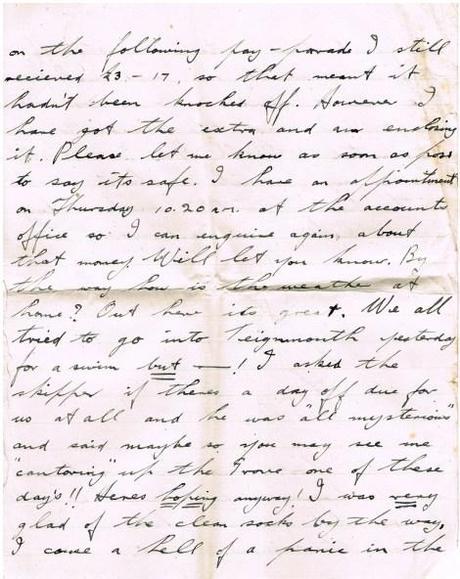 on the following pay-parade I still
recieved £3-17, so that meant it
hadn't been knocked off. However I
have got the extra and am enclosing
it. Please let me know as soon as poss
to say its safe. I have an appointment
on Thursday 10.20 am. at the accounts
office so I can enquire again about
that money. Will let you know. By
the way how is the weathe at
home? Out here its great. We all
tried to go into Teignmouth yesterday
for a swim but —! I asked the
skipper if theres a day off due for
us at all and he was "all mysterious"
and said maybe so you may see me
"cantoring" up the Grove one of these
day's!! Heres hoping anyway! I was very
glad of the clean socks by the way,
I came a hell of a panic in the